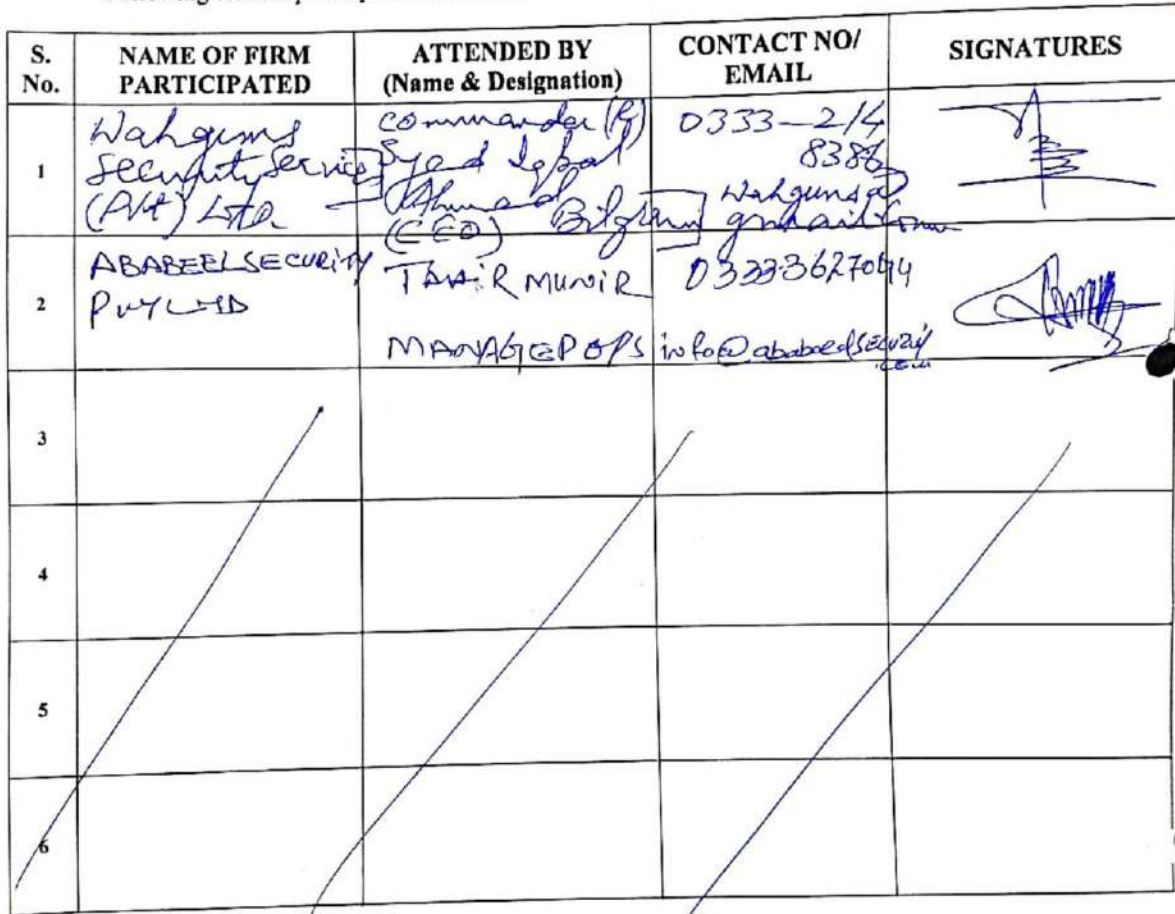 S. No.
NAME OF FIRM PARTICIPATED
ATTENDED BY (Name & Designation)
CONTACT NO/ EMAIL
SIGNATURES
1
Wahguns
Security Services
(Pvt) Ltd.
Commander (R)
Syed Iqbal
Ahmad Bilgrami
(CEO)
0333-214
8386
2
ABABEEL SECURITY
TAHIR MUNIR
MANAGER OPS
info@ababeelsecurity
.com
3
4
5
6